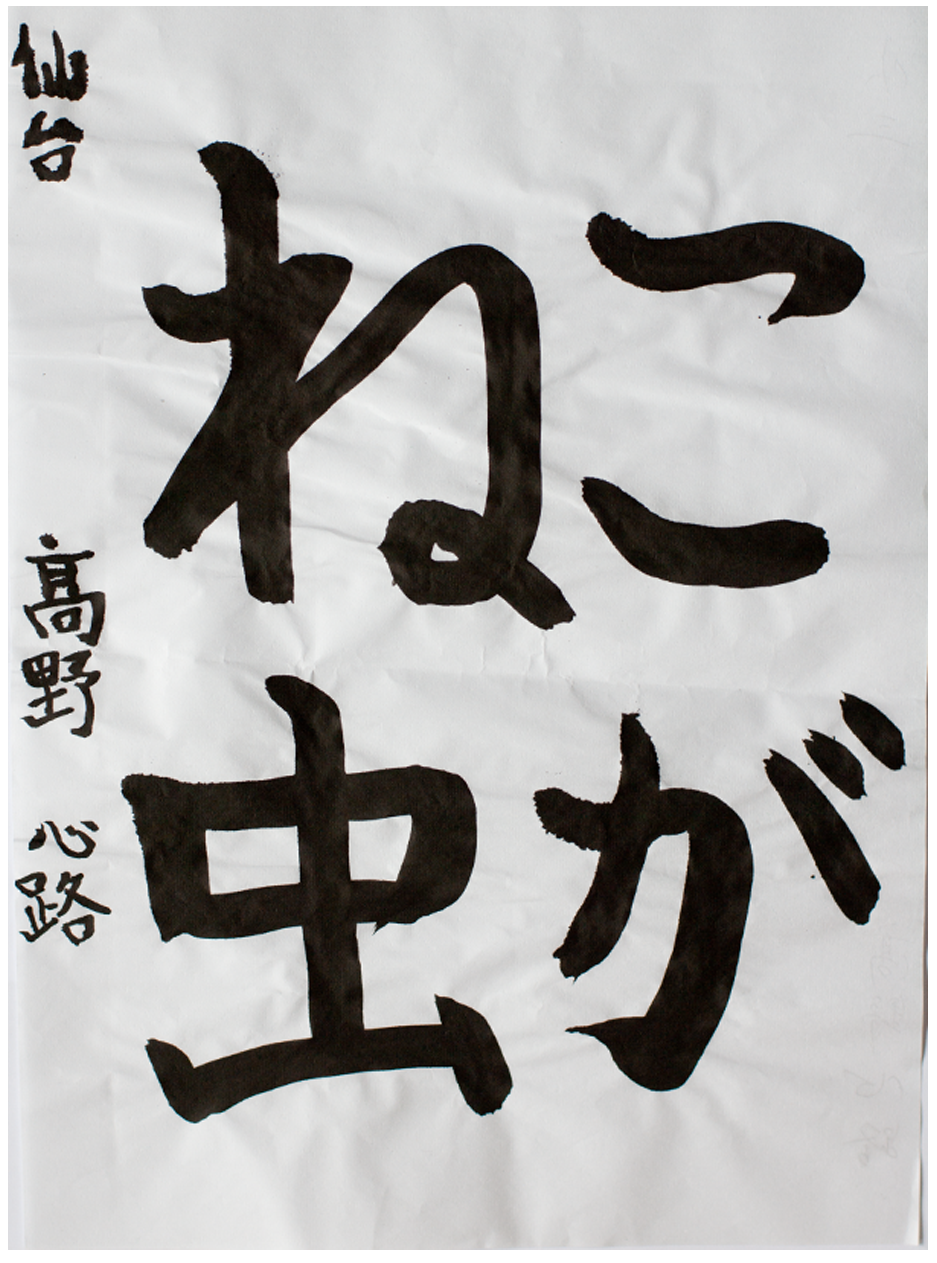 こが
ね虫
仙台 高野 心路